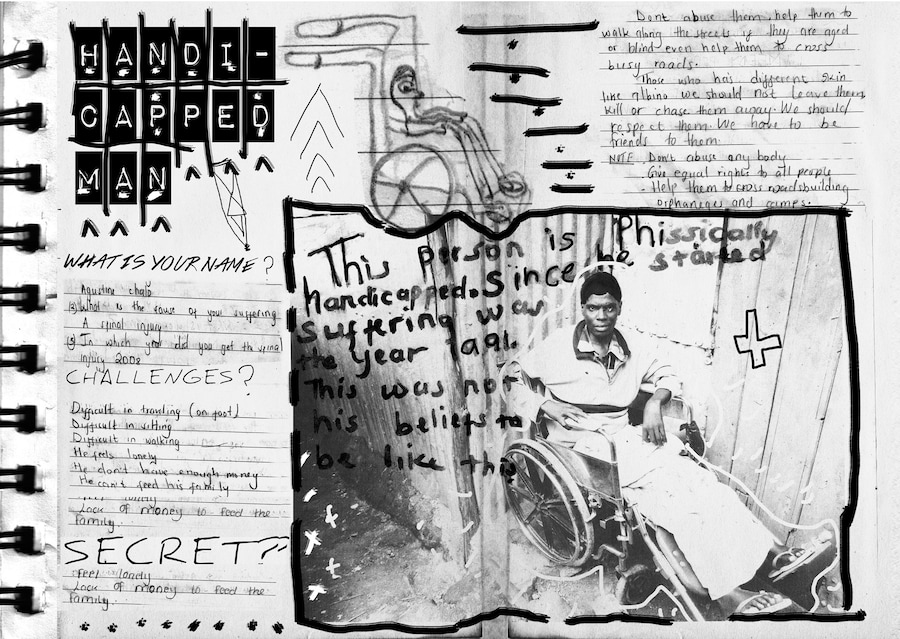 HANDI-
CAPPED
MAN
WHAT IS YOUR NAME?
Agustine
(2) What is the cause of your suffering
A spinal injury
(3) In which year did you get the
injury 2008
CHALLENGES?
Difficult in traveling (on foot)
Difficult in sitting
Difficult in walking
He feels lonely
He don't have enough money
He can't feed his family
Lack of money to food the
family.
SECRET?
feel lonely
Lack of money to food the
family.
Dont abuse them, help them to
walk along the streets if they are aged
or blind even help them to cross
busy roads.
Those who has different skin
like Albino we should not leave them,
kill or chase them away. We should
respect them. We have to be
friends to them.
NOTE Don't abuse any body
Give equal rights to all people
- Help them to cross roads building
orphaneges and camps.
This person is Phissically
handicapped. Since he started
suffering was
the year
This was not
his beliefs to
be like this